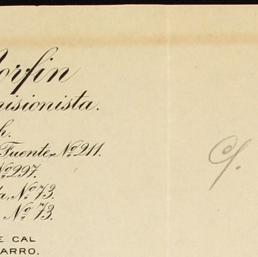 orfin
misionista.
h.
Fuente, Nº 211.
Nº 297.
a, Nº 73.
Nº 73.
E CAL
ARRO.